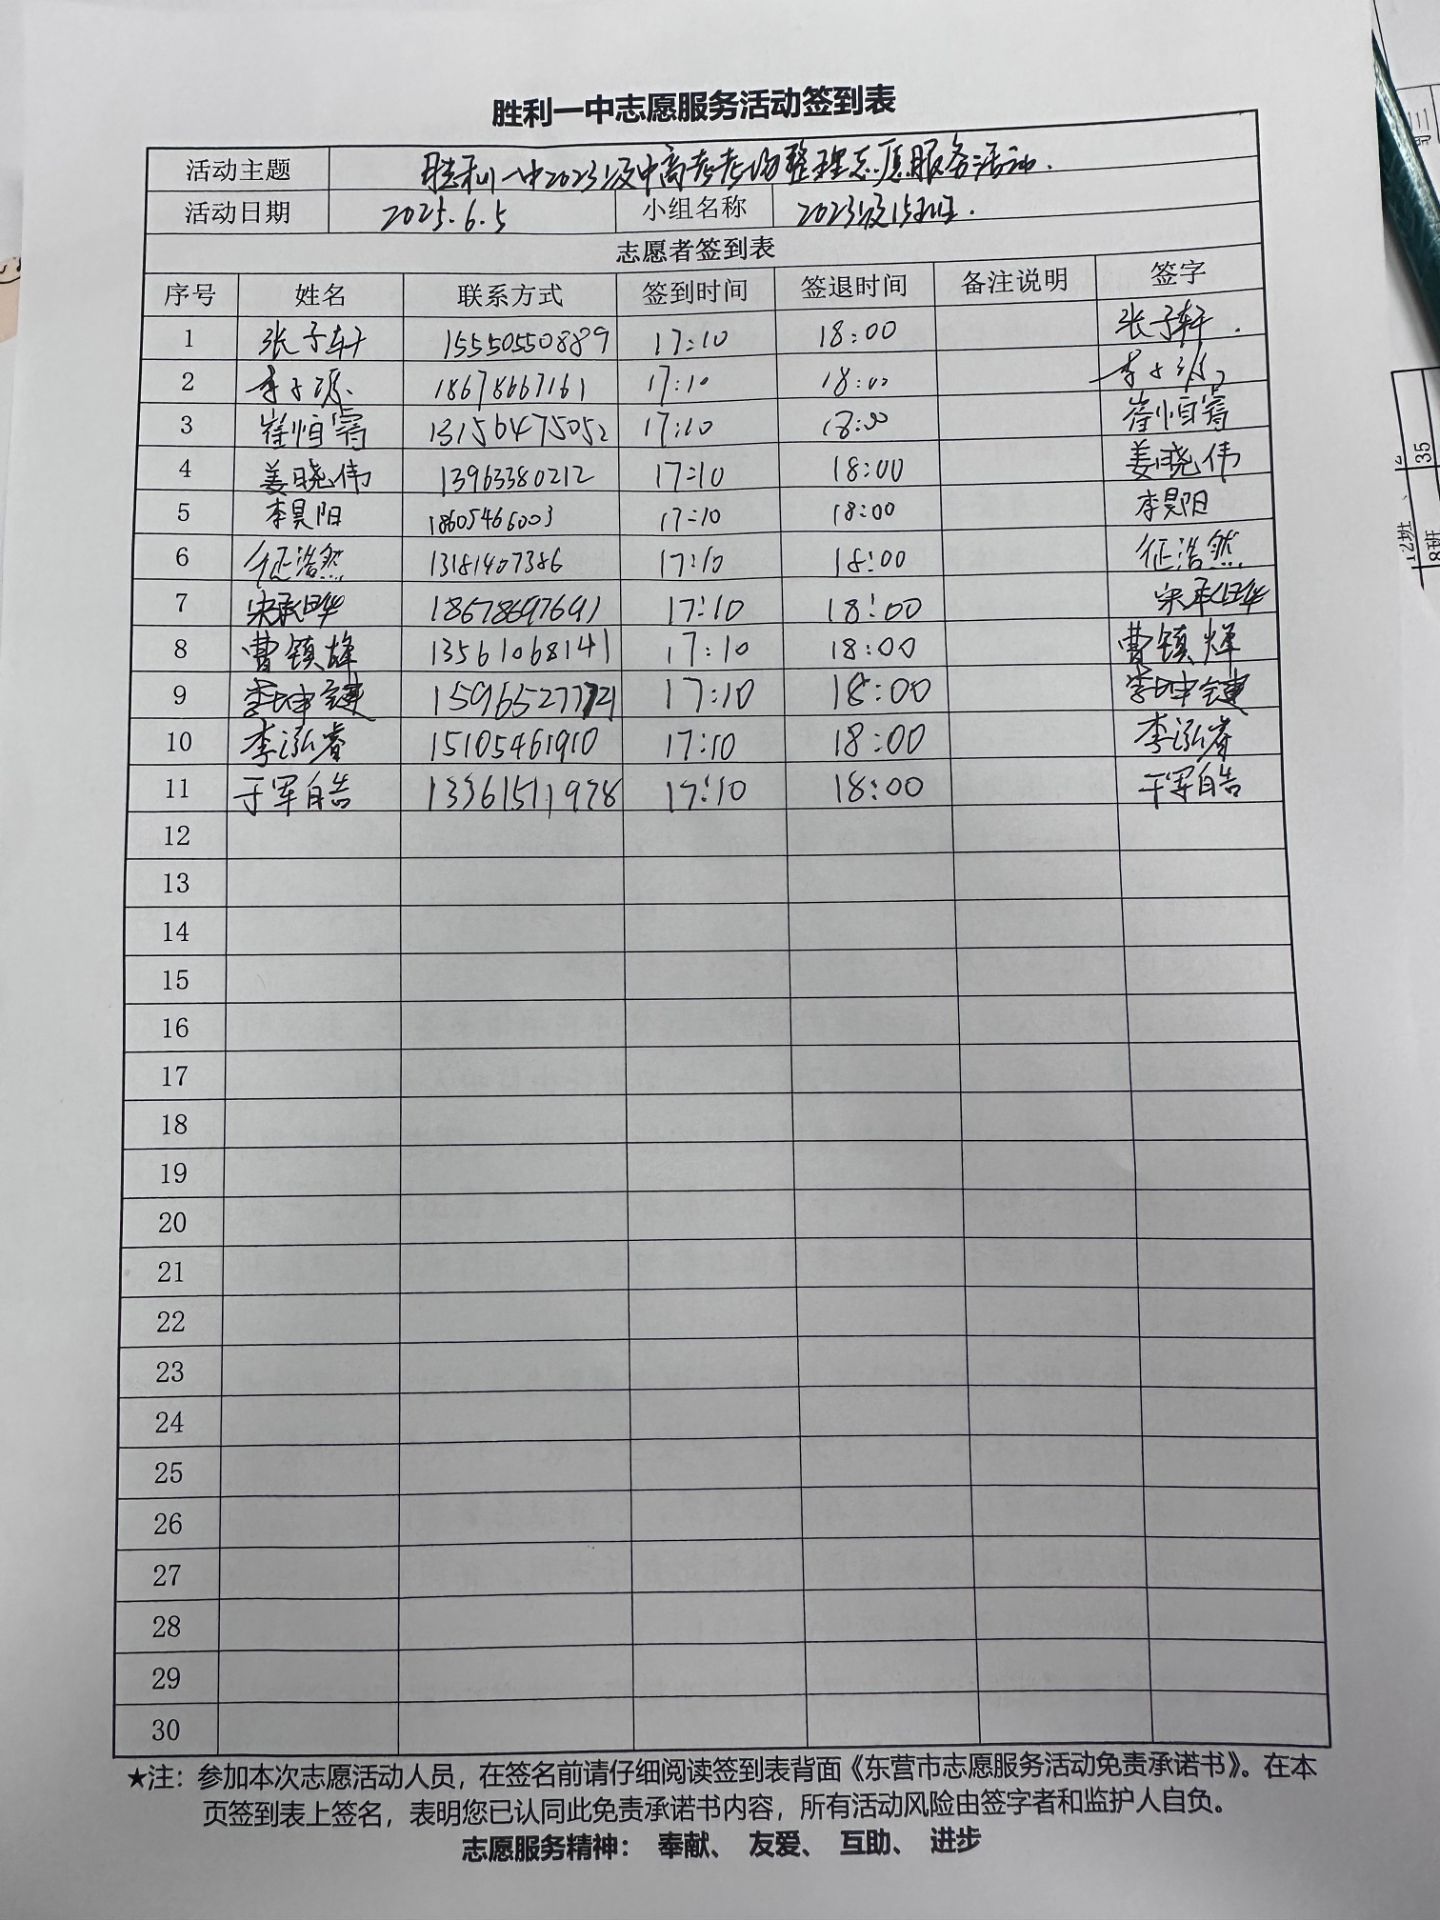 胜利一中志愿服务活动签到表
活动主题 胜利一中2023级中高考考场整理志愿服务活动.
活动日期 2025.6.5 小组名称 2023级15班.
志愿者签到表
序号 姓名 联系方式 签到时间 签退时间 备注说明 签字
1 张子轩 15550550889 17:10 18:00 张子轩.
2 李子源 18678667161 17:10 18:00 李子源
3 崔恒睿 13156475052 17:10 18:00 崔恒睿
4 姜晓伟 13963380212 17:10 18:00 姜晓伟
5 李昊阳 18605466003 17:10 18:00 李昊阳
6 征浩然 13181407386 17:10 18:00 征浩然
7 宋承晔 18678697691 17:10 18:00 宋承晔
8 曹镇烽 13561068141 17:10 18:00 曹镇烽
9 李坤键 17:10 18:00 李坤键
10 李泓睿 15105461910 17:10 18:00 李泓睿
11 于军皓 13361511978 17:10 18:00 于军皓
12
13
14
15
16
17
18
19
20
21
22
23
24
25
26
27
28
29
30
★注：参加本次志愿活动人员，在签名前请仔细阅读签到表背面《东营市志愿服务活动免责承诺书》。在本
页签到表上签名，表明您已认同此免责承诺书内容，所有活动风险由签字者和监护人自负。
志愿服务精神： 奉献、 友爱、 互助、 进步
12班
35
8班